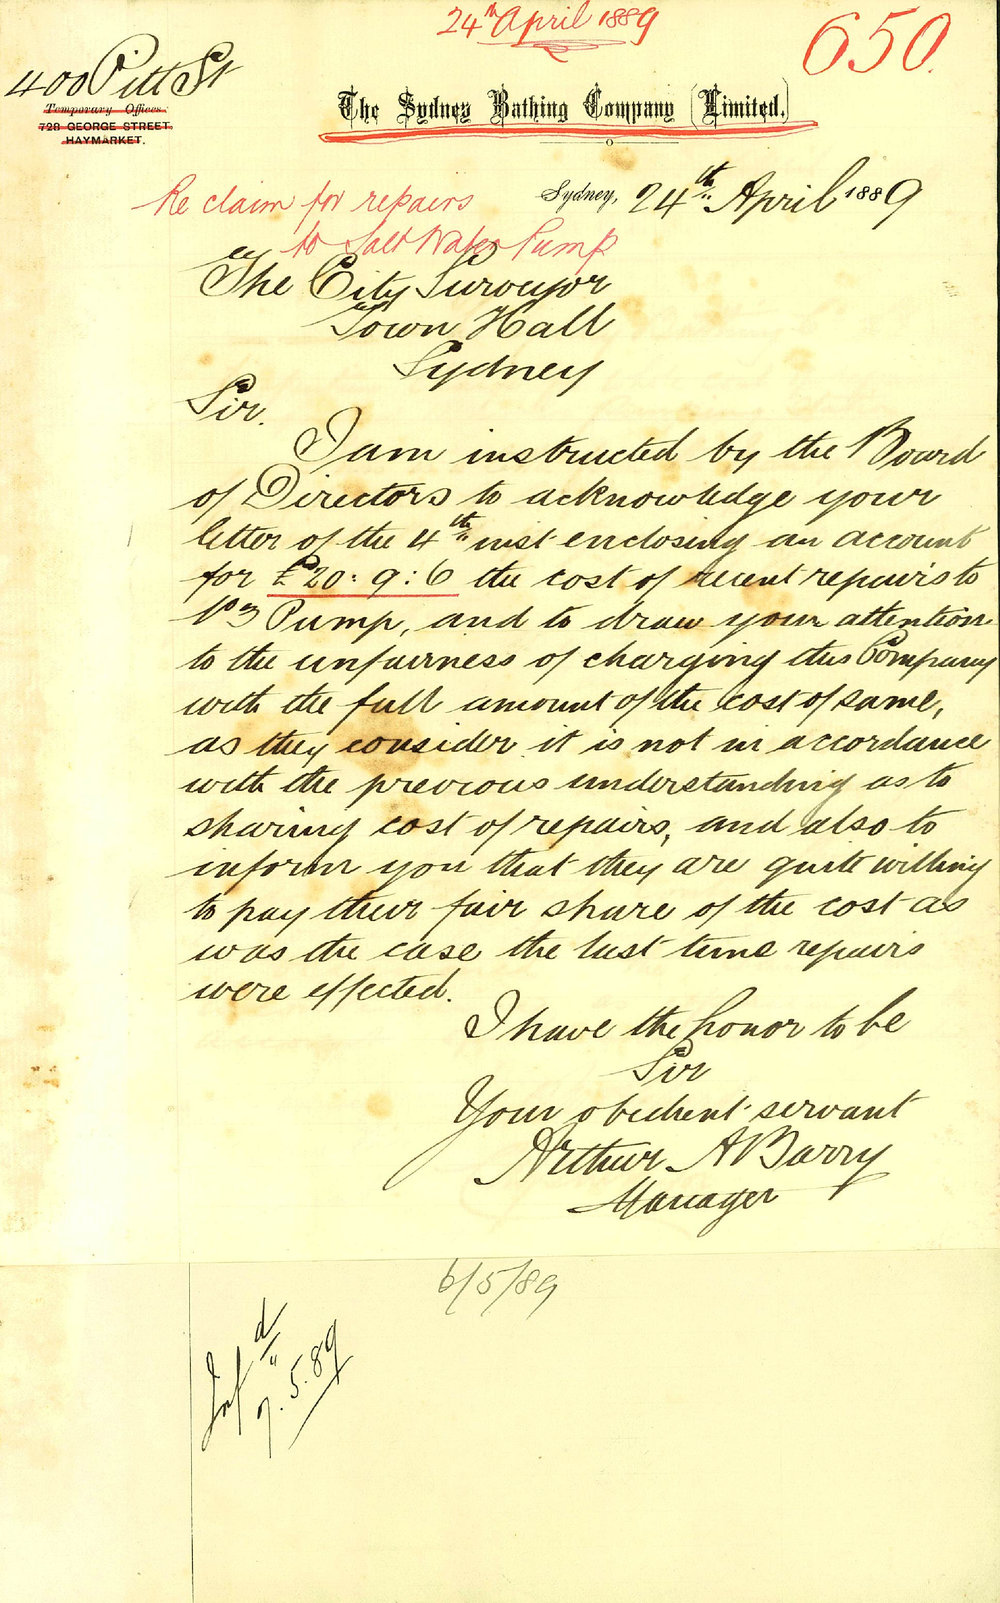 24th April 1889
650.
400 Pitt St
Temporary Offices:
728 GEORGE STREET,
HAYMARKET.
The Sydney Bathing Company (Limited.)
Re claim for repairs
to Salt Water Pump
Sydney, 24th April 1889
The City Surveyor
Town Hall
Sydney
Sir.
I am instructed by the Board
of Directors to acknowledge your
letter of the 4th inst enclosing an account
for £20:9:6 the cost of recent repairs to
Pump, and to draw your attention
to the unfairness of charging this Company
with the full amount of the cost of same,
as they consider it is not in accordance
with the previous understanding as to
sharing cost of repairs, and also to
inform you that they are quite willing
to pay their fair share of the cost as
was the case the last time repairs
were effected.
I have the honor to be
Sir
Your obedient servant
Arthur A Barry
Manager
6/5/89
Infd
7.5.89